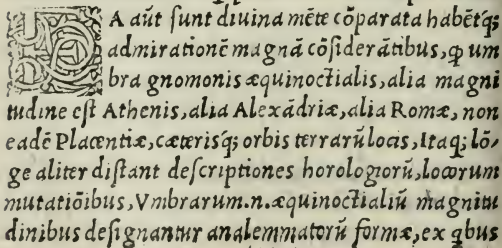 EA aūt ſunt diuina mēte cōparata habētq;
admirationē magnā cōſiderātibus, ꝙ um
bra gnomonis æquinoctialis, alia magni
tudine eſt Athenis, alia Alexādriæ, alia Romæ, non
eadē Placentiæ, cæterisq; orbis terrarū locis, Itaq; lō-
ge aliter diſtant deſcriptiones horologiorū, locorum
mutatiōibus, Vmbrarum.n. æquinoctialiū magnitu
dinibus deſignantur analemmatorū formæ, ex qbus